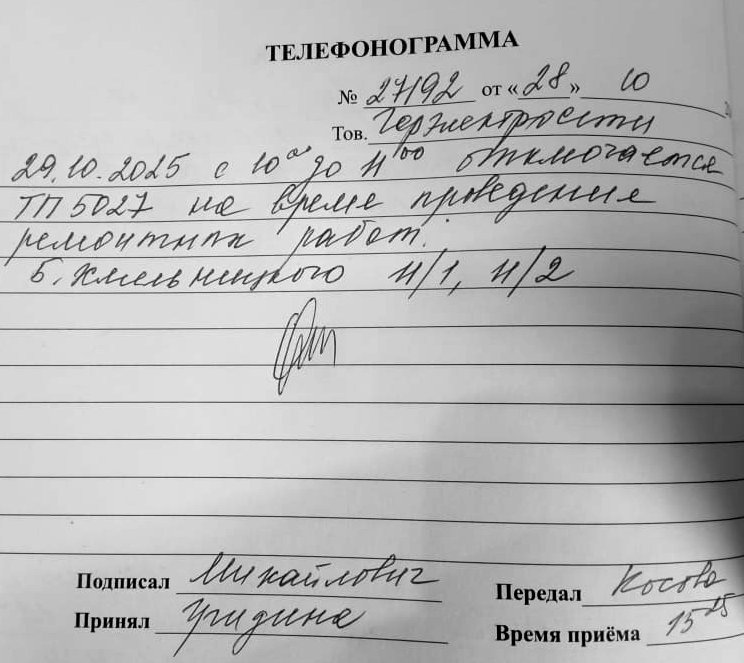 ТЕЛЕФОНОГРАММА
№ 27192 от «28» 10
Тов. Горэлектросети
29.10.2025 с 10⁰⁰ до 11⁰⁰ отключается
ТП 5027 на время проведения
ремонтных работ.
Б. Хмельницкого 11/1, 11/2
Подписал Михайлович
Передал Косова
Принял Уридина
Время приёма 15²⁵